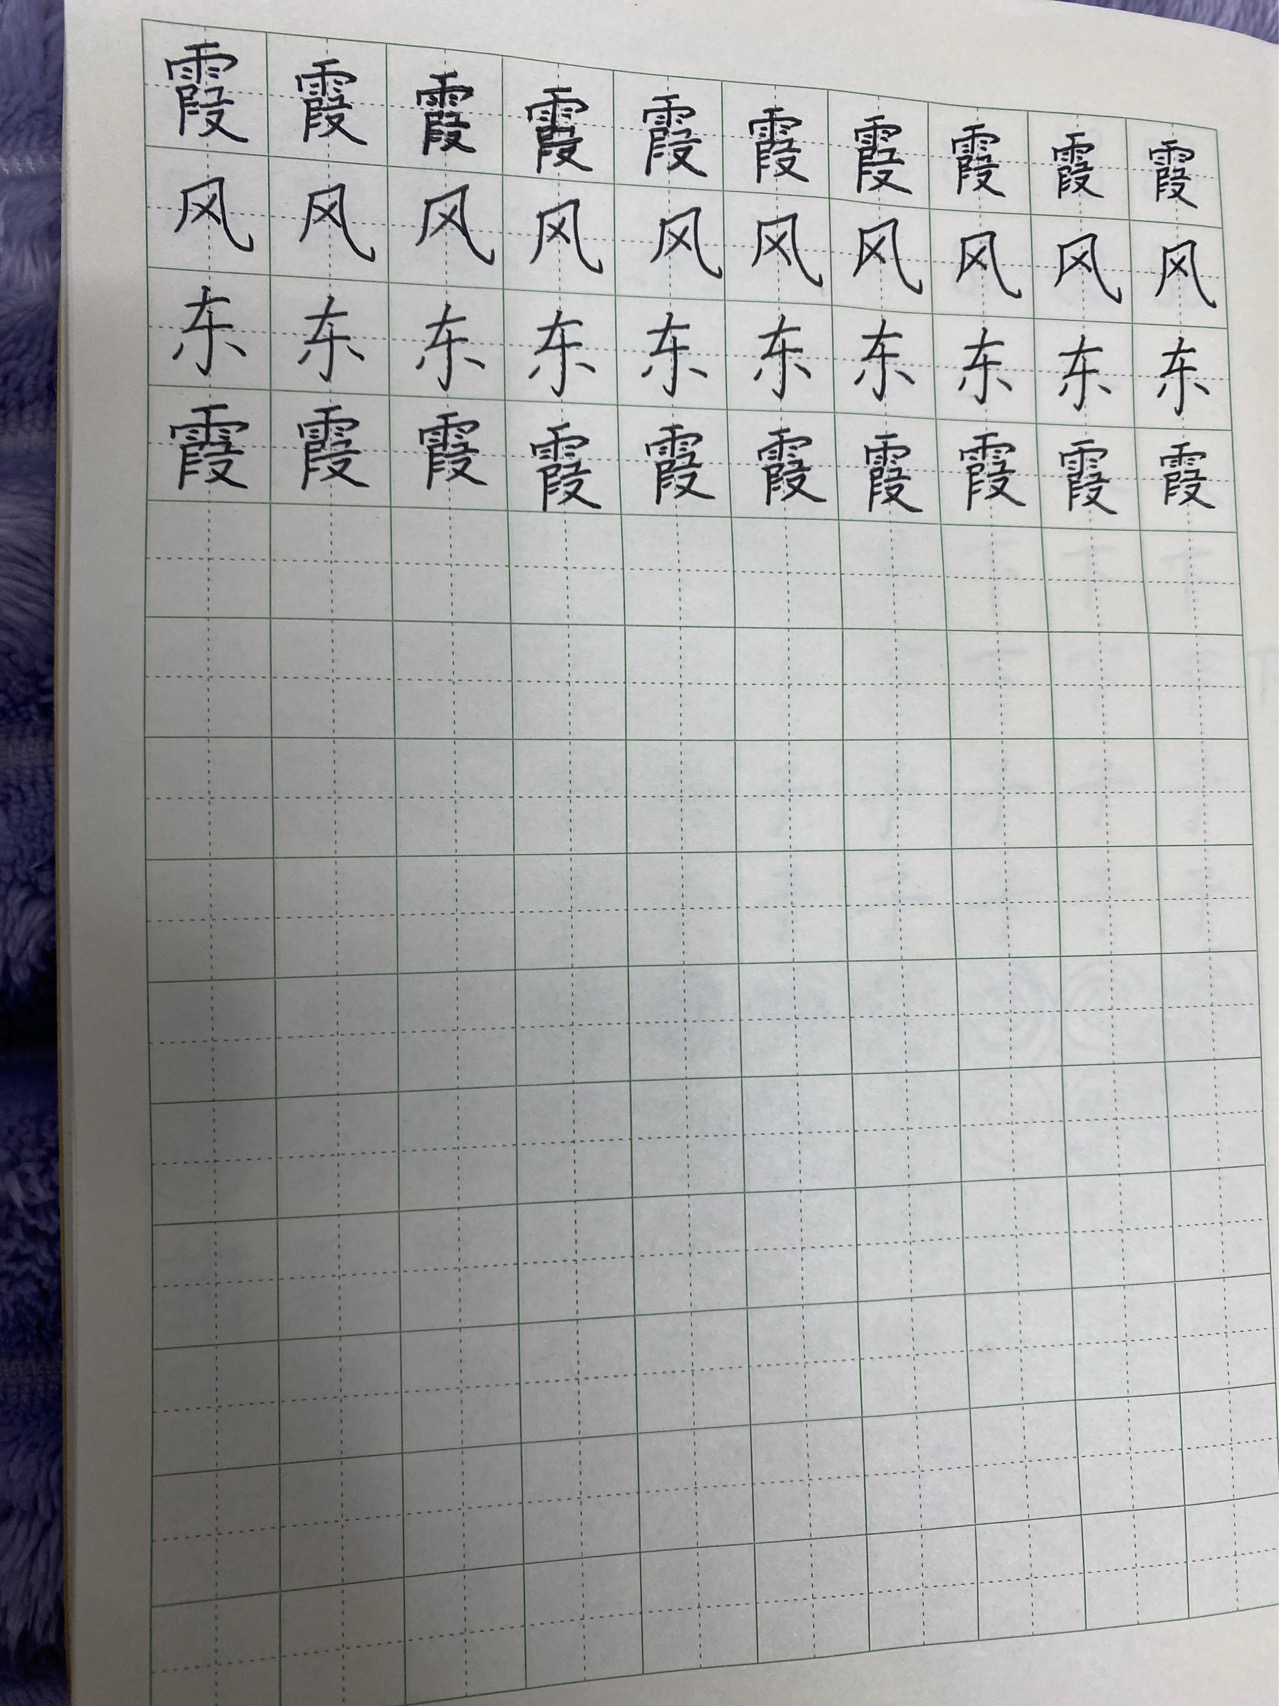 霞霞霞霞霞霞霞霞霞霞
风风风风风风风风风风
东东东东东东东东东东
霞霞霞霞霞霞霞霞霞霞